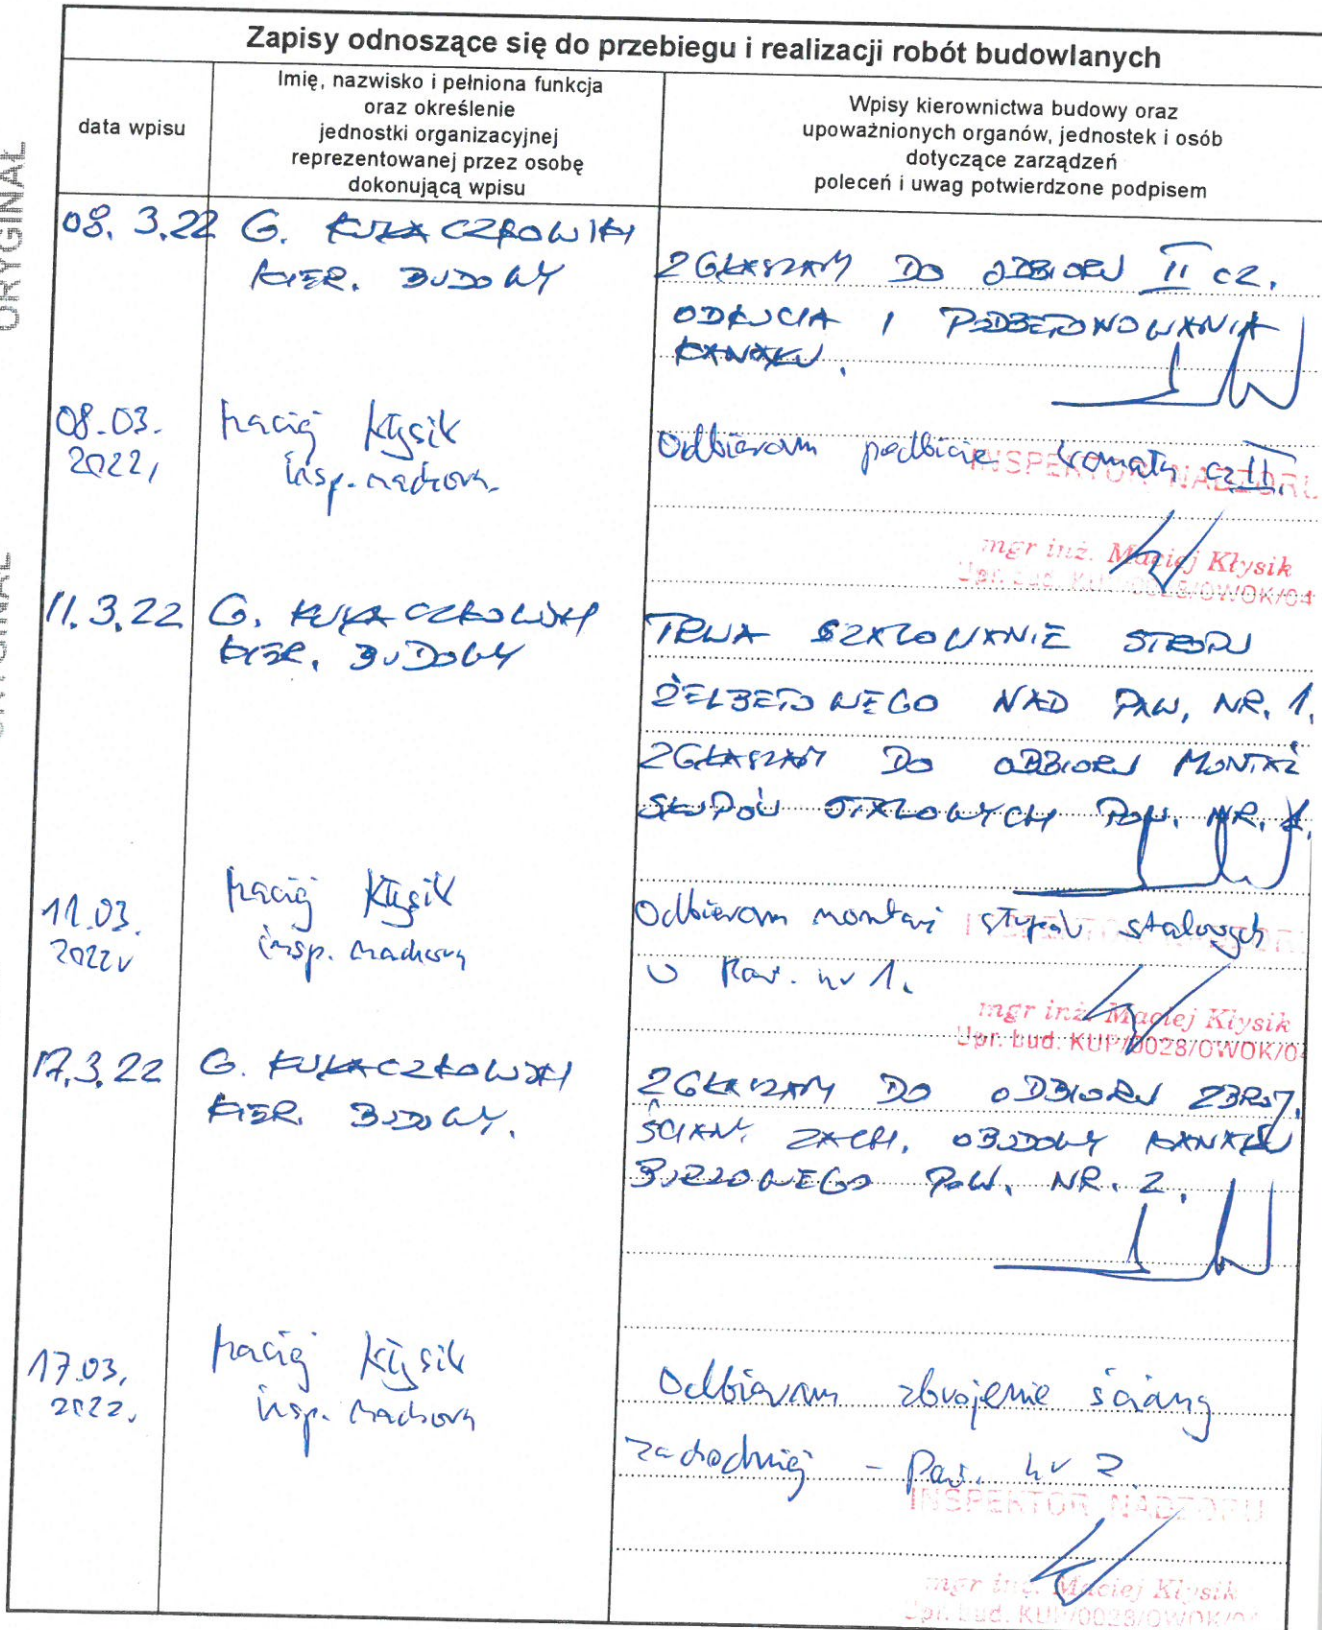 ORYGINAŁ
ORYGINAŁ
Zapisy odnoszące się do przebiegu i realizacji robót budowlanych
data wpisu
Imię, nazwisko i pełniona funkcja
oraz określenie
jednostki organizacyjnej
reprezentowanej przez osobę
dokonującą wpisu
Wpisy kierownictwa budowy oraz
upoważnionych organów, jednostek i osób
dotyczące zarządzeń
poleceń i uwag potwierdzone podpisem
08. 3.22 G.
KIER. BUDOWY
ZGŁASZAM DO ODBIORU II CZ.
ODKUCIA I PODBETONOWANIA
KANAŁU.
08.03.
2022r
Maciej Kłysik
insp. nadzoru
Odbieram podbicie cz II.
INSPEKTOR NADZORU
mgr inż. Maciej Kłysik
Upr. bud. KUP/0028/OWOK/04
11.3.22 G.
KIER. BUDOWY
TRWA SZALOWANIE STROPU
ŻELBETOWEGO NAD PAW. NR. 1.
ZGŁASZAM DO ODBIORU MONTAŻ
SŁUPÓW STALOWYCH PAW. NR. 1.
11.03.
2022r
Maciej Kłysik
insp. nadzoru
Odbieram montaż słupów stalowych
w Paw. nr 1.
mgr inż. Maciej Kłysik
Upr. bud. KUP/0028/OWOK/04
17.3.22 G.
KIER. BUDOWY.
ZGŁASZAM DO ODBIORU ZBROJ.
ŚCIAN. ZACH. OBUDOWY KANAŁU
BURZOWEGO PAW. NR. 2.
17.03.
2022.
Maciej Kłysik
insp. nadzoru
Odbieram zbrojenie ściany
zachodniej - Paw. nr 2
INSPEKTOR NADZORU
mgr inż. Maciej Kłysik
Upr. bud. KUP/0028/OWOK/04